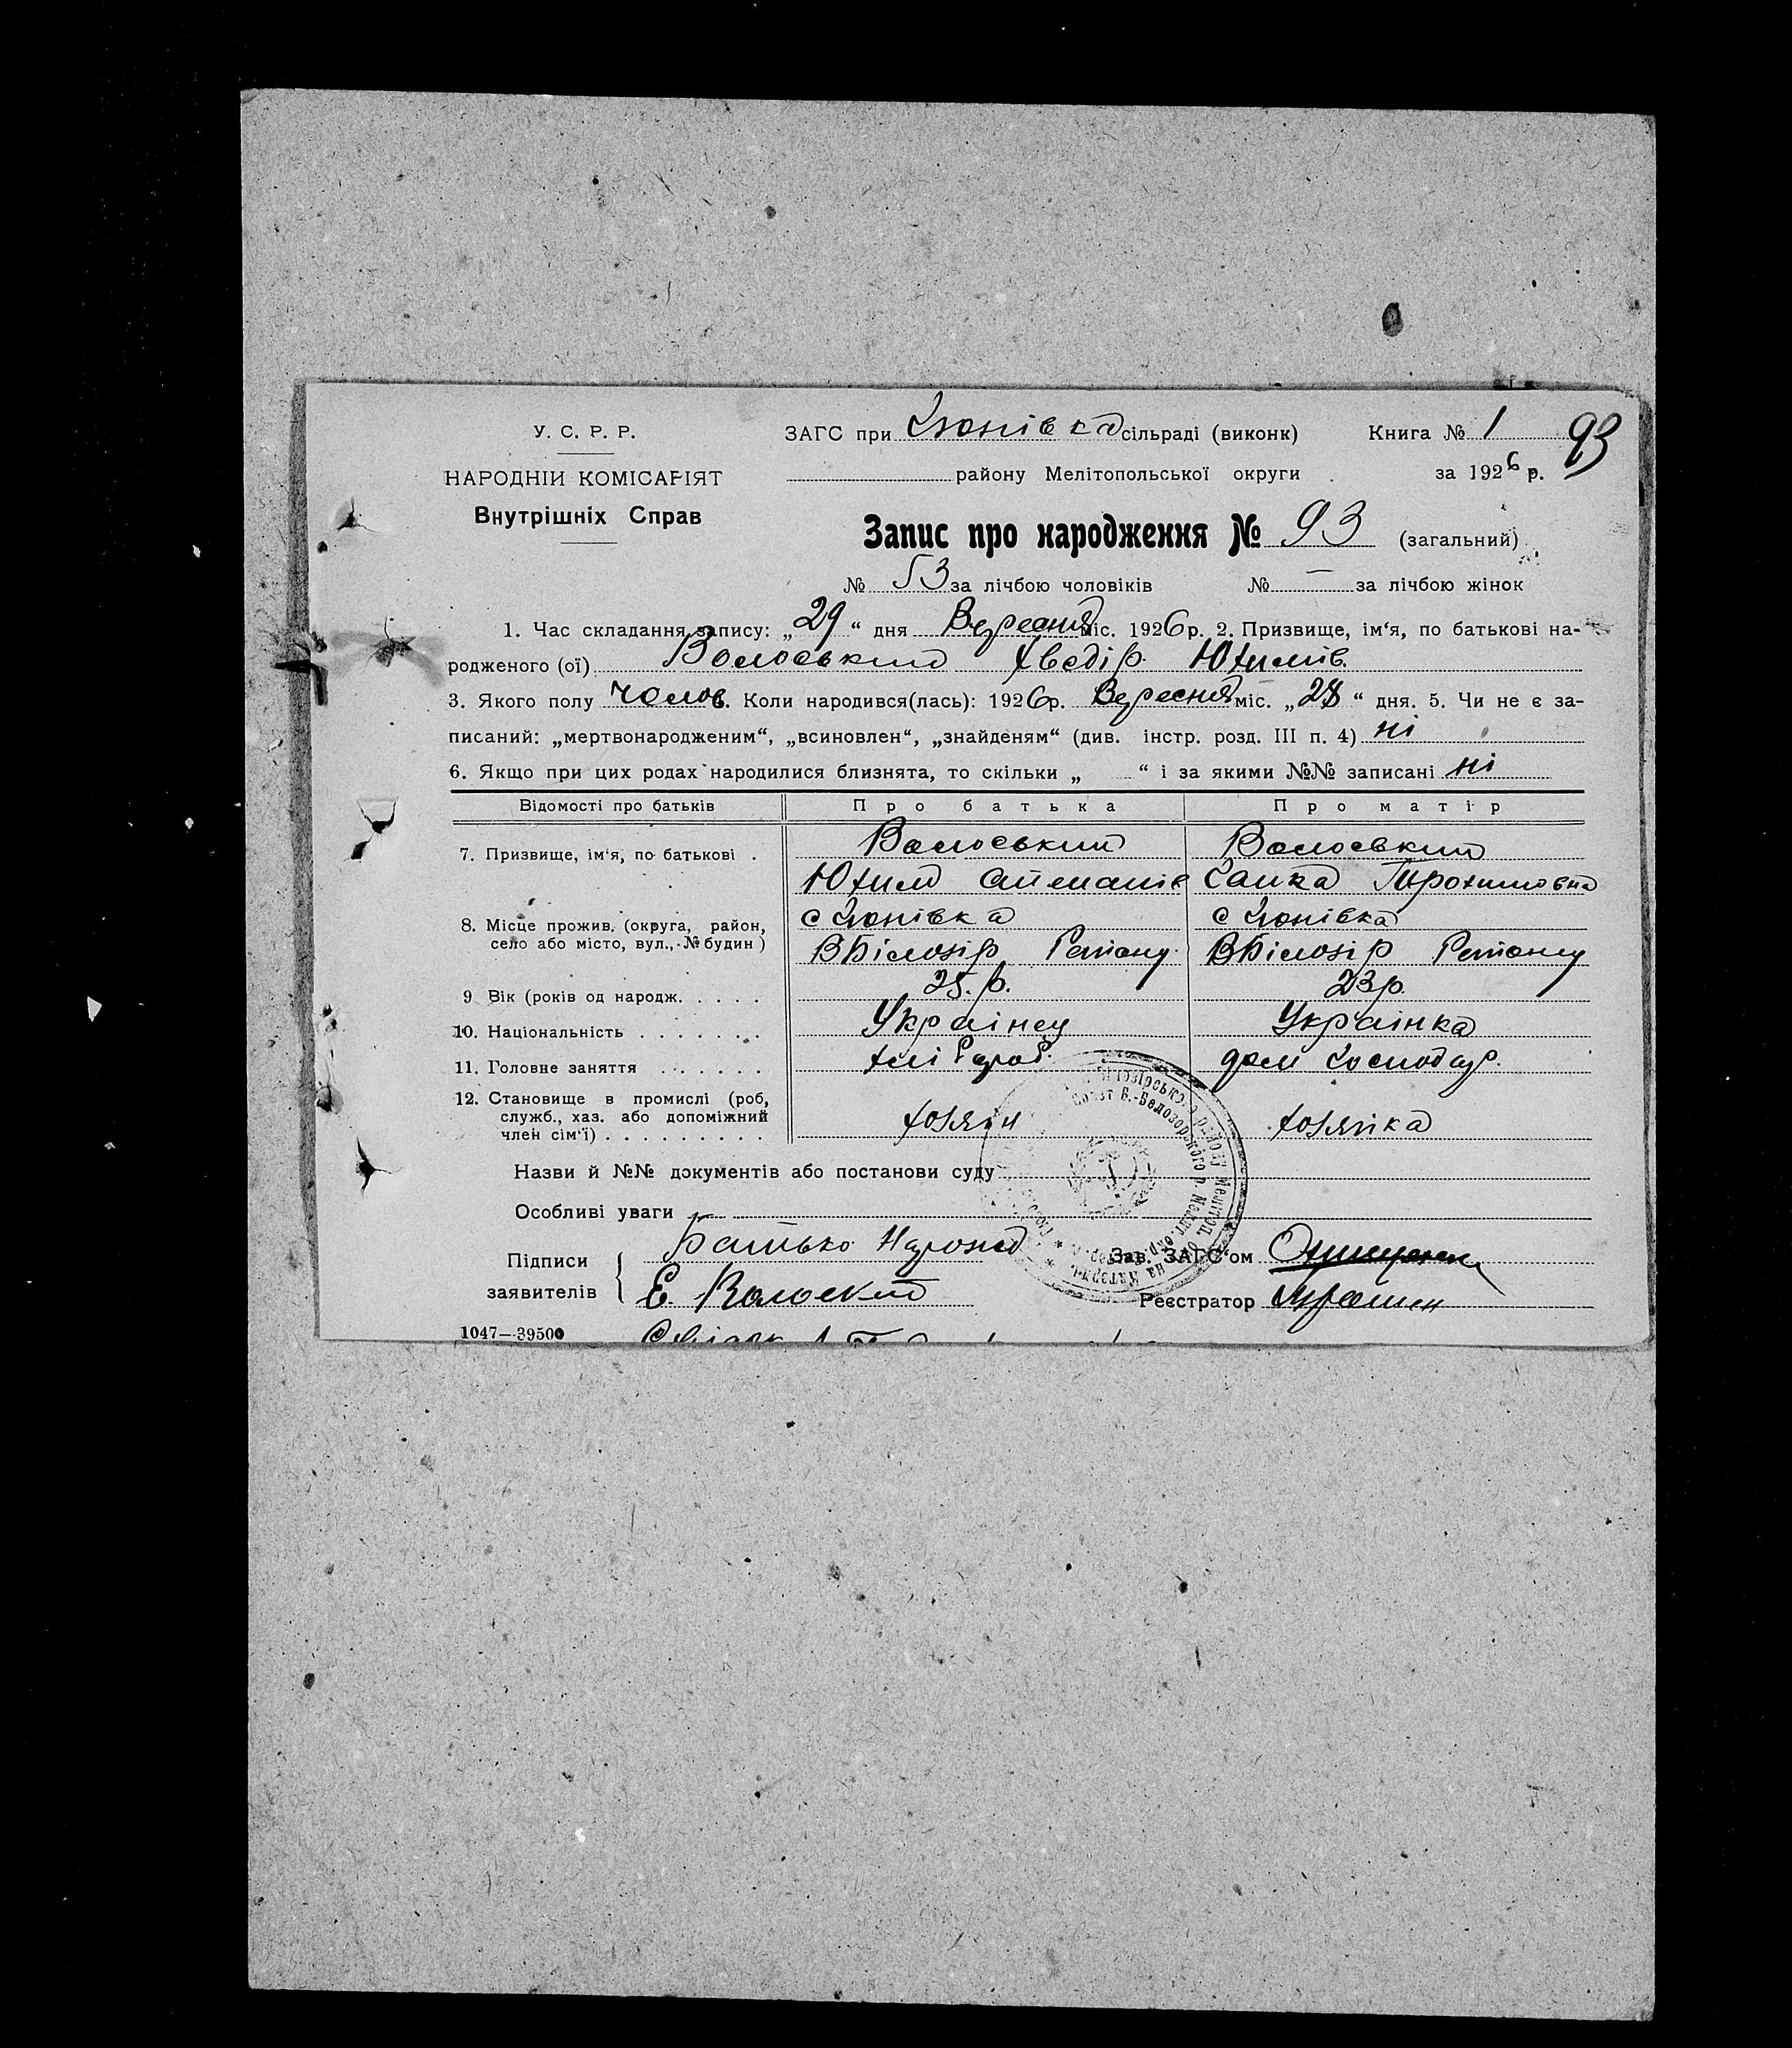 У. С. Р. Р.
НАРОДНІЙ КОМІСАРІЯТ
Внутрішніх Справ
ЗАГС при Гюнівка сільраді (виконк) Книга № 1 93
району Мелітопольської округи за 1926 р.
Запис про народження № 93 (загальний)
№ 53 за лічбою чоловіків № — за лічбою жінок
1. Час складання запису: „29“ дня Вересня міс. 1926 р. 2. Призвище, ім‘я, по батькові на-
родженого (ої) Волоський Хведір Юхимів.
3. Якого полу Чолов. Коли народився(лась): 1926 р. Вересня міс. „28“ дня. 5. Чи не є за-
писаний: „мертвонародженим“, „всиновлен“, „знайденям“ (див. інстр. розд. III п. 4) ні
6. Якщо при цих родах народилися близнята, то скільки „ “ і за якими №№ записані ні
Відомості про батьків Про батька Про матір
7. Призвище, ім‘я, по батькові . Волоський Волоський
Юхим Санка Трохимовна
8. Місце прожив. (округа, район, с Гюнівка с Гюнівка
село або місто, вул., № будин) ВБілозір Району ВБілозір Району
9 Вік (років од народж. . . . . 25. р. 23 р.
10. Національність . . . . . . . Українец Українка
11. Головне заняття . . . . . . Хлібароб. дом Господар.
12. Становище в промислі (роб,
служб., хаз. або допоміжний
член сім‘ї) . . . . . . . . . хозяін хозяйка
Назви й №№ документів або постанови суду
Особливі уваги
Підписи Батько
заявителів Е. Волоский
Зав. ЗАГС‘ом
Реєстратор
1047—39500